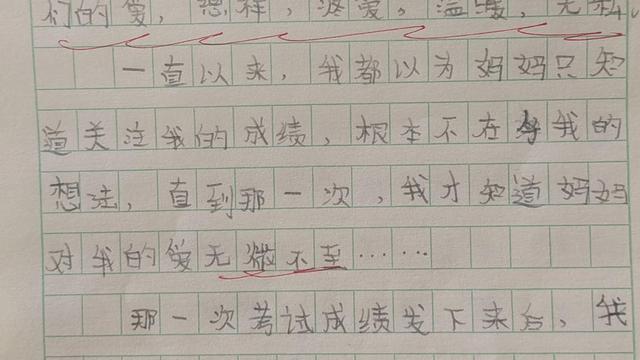 们的爱，慈祥，疼爱，温暖，无私
一直以来，我都以为妈妈只知
道关注我的成绩，根本不在乎我的
想法，直到那一次，我才知道妈妈
对我的爱无微不至……
那一次考试成绩发下来后，我